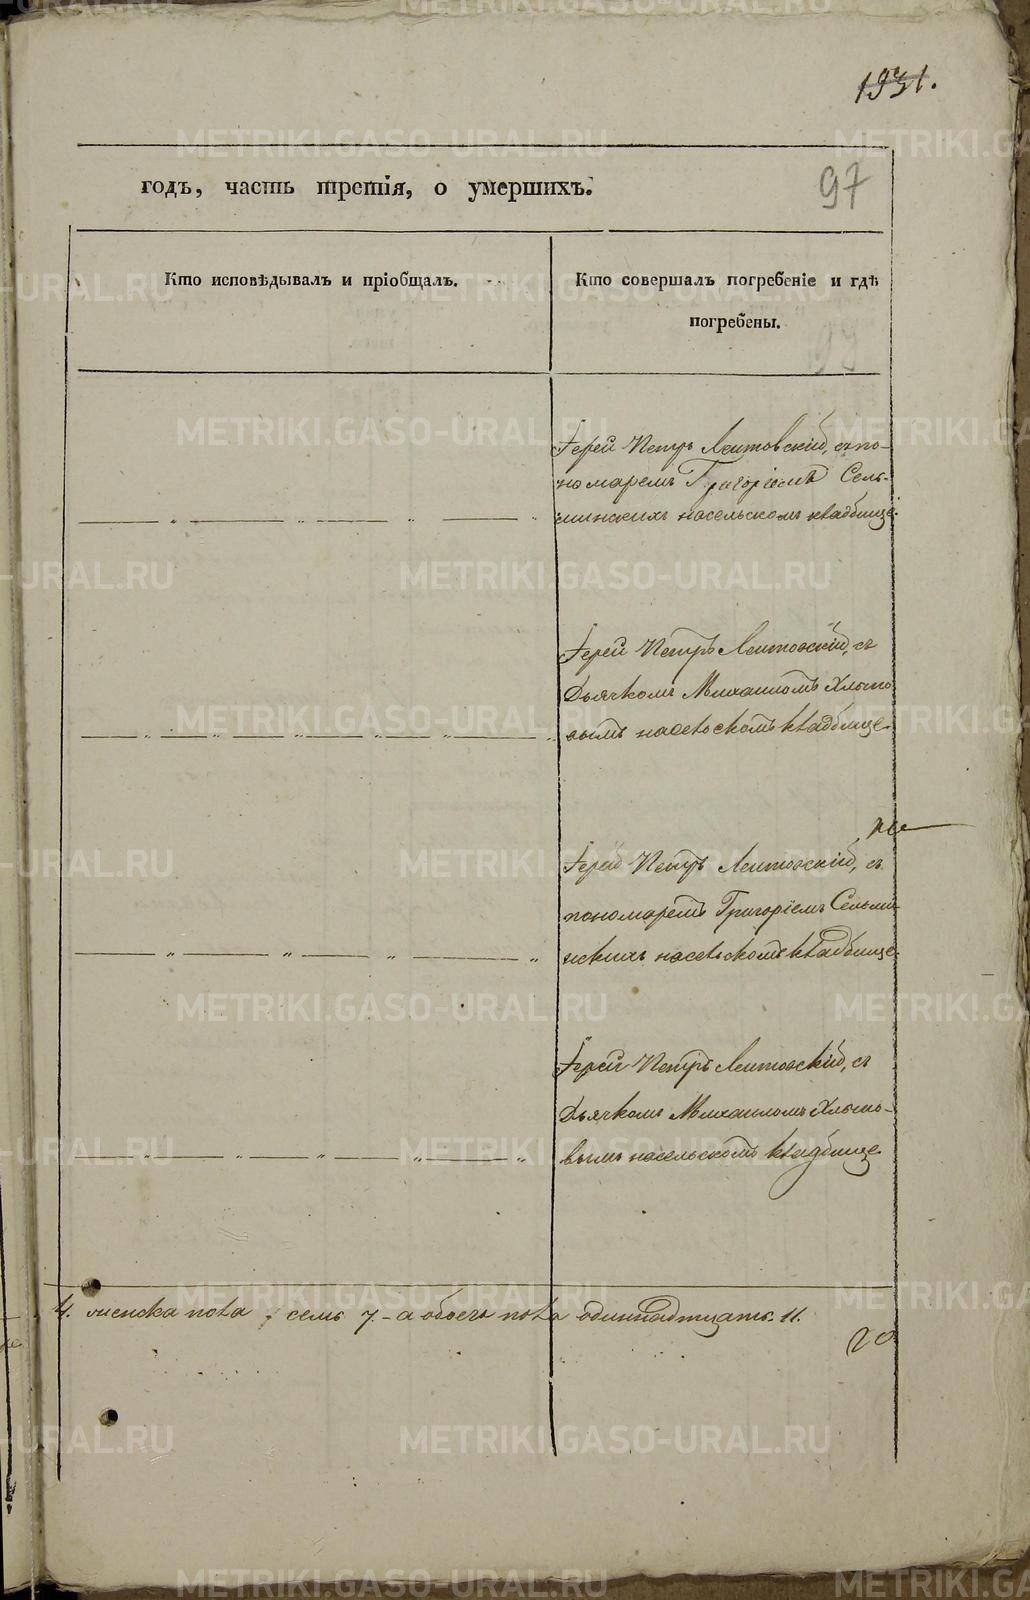 1931.
97
годъ, часть третія, о умершихъ.
Кто исповѣдывалъ и пріобщалъ.
Кто совершалъ погребеніе и гдѣ
погребены.
Іерей Петръ Лентовскій, съ по-
номаремъ Григоріемъ Сель-
минскихъ насельскомъ кладбище.
Іерей Петръ Лентовскій, съ
Дьячкомъ Михаиломъ Хлыно
вымъ насельскомъ кладбище
Іерей Петръ Лентовскій, съ
пономаремъ Григоріемъ Сельми
нскихъ насельскомъ кладбище.
Іерей Петръ Лентовскій, съ
Дьячкомъ Михаиломъ Хлыно-
вымъ насельскомъ кладбище.
4. женска пола, семь 7.-а обоего пола одиннадтцать. 11.
METRIKI.GASO-URAL.RU